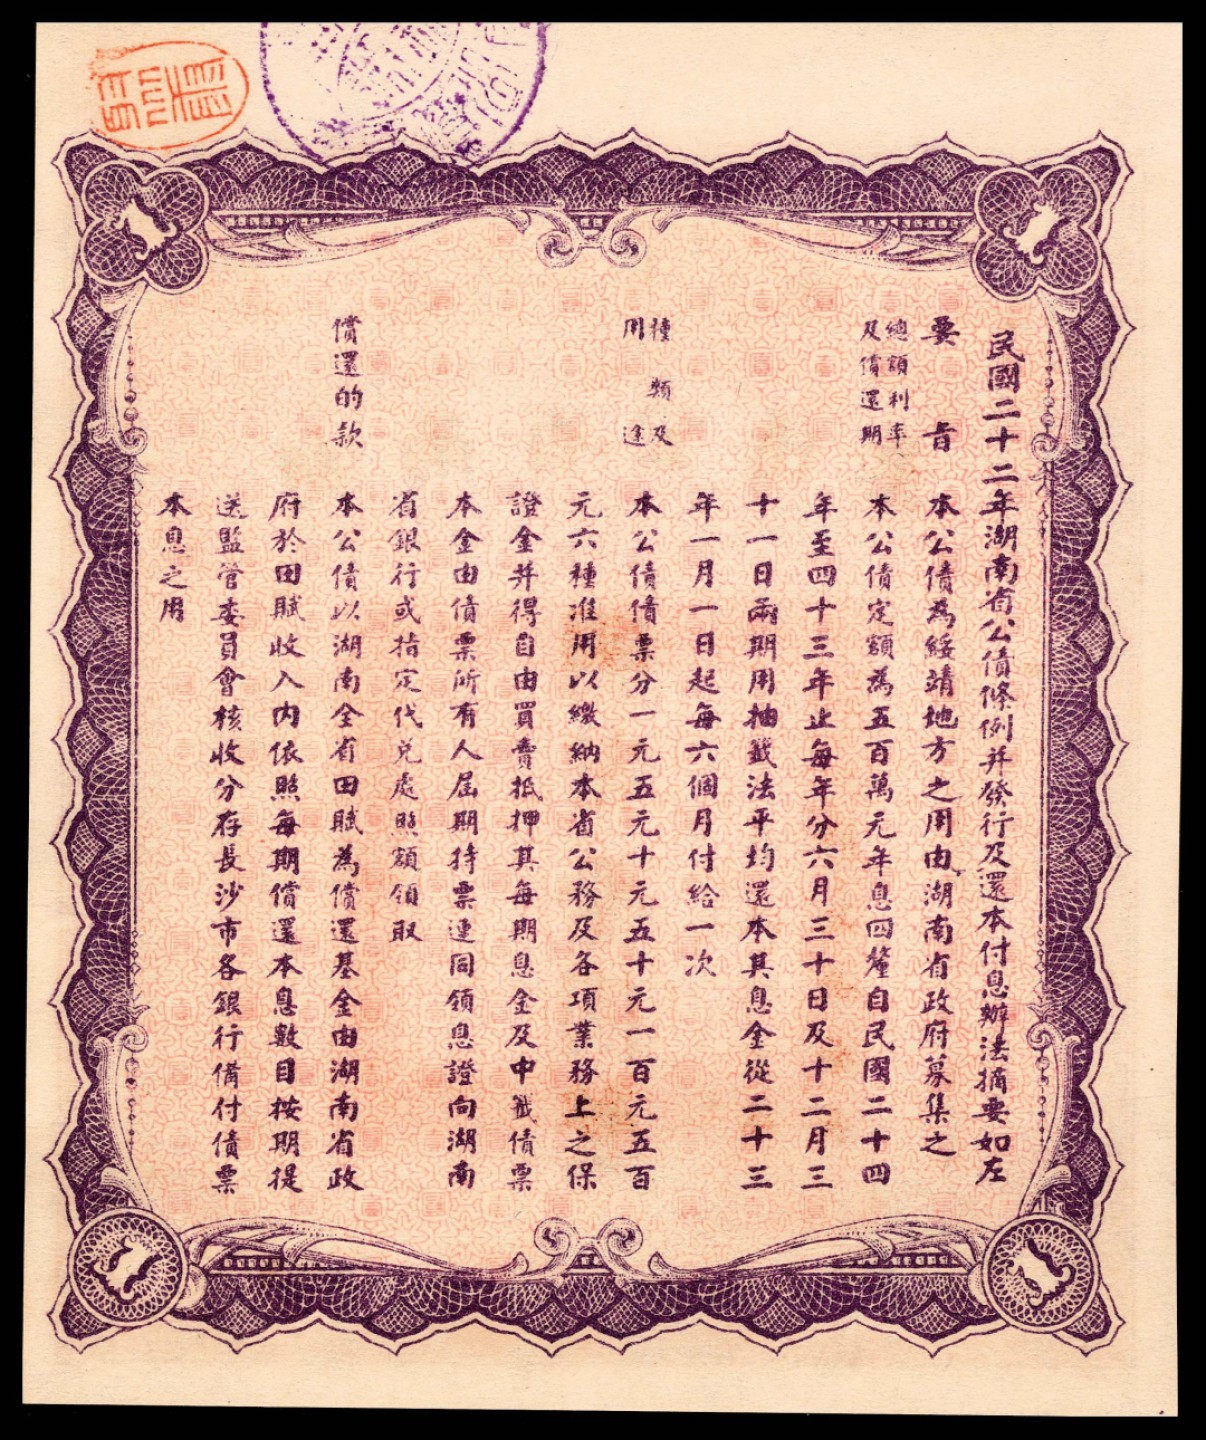 民國二十二年湖南省公債條例并發行及還本付息辦法摘要如左
要旨
本公債為綏靖地方之用由湖南省政府募集之
總額利率
及償還期
本公債定額為五百萬元年息四釐自民國二十四
年至四十三年止每年分六月三十日及十二月三
十一日兩期用抽籤法平均還本其息金從二十三
年一月一日起每六個月付給一次
種類及
用途
本公債債票分一元五元十元五十元一百元五百
元六種准用以繳納本省公務及各項業務上之保
證金并得自由買賣抵押其每期息金及中籤債票
本金由債票所有人屆期持票連同領息證向湖南
省銀行或指定代兌處照額領取
償還的款
本公債以湖南全省田賦為償還基金由湖南省政
府於田賦收入內依照每期償還本息數目按期提
送監管委員會核收分存長沙市各銀行備付債票
本息之用